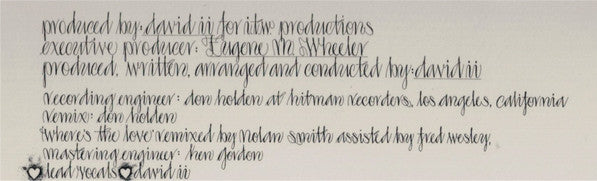 produced by: david ii for itw productions
executive producer: Eugene M Wheeler
produced, written, arranged and conducted by: david ii
recording engineer: don holden at hitman recorders, los angeles, california
remix: don holden
where's the love remixed by nolan smith assisted by fred wesley,
mastering engineer: ken gordon
lead vocals david ii